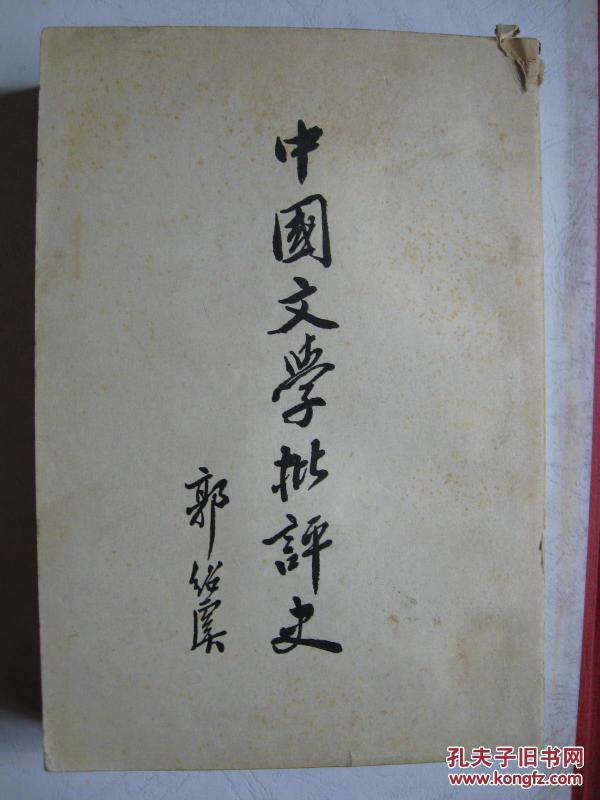 中國文学批評史
郭绍虞
孔夫子旧书网
www.kongfz.com